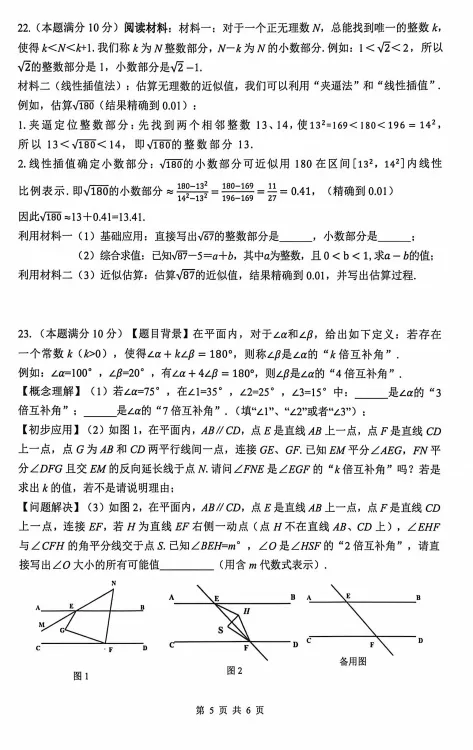 22.（本题满分 10 分）阅读材料：材料一：对于一个正无理数 N，总能找到唯一的整数 k，
使得 k<N<k+1. 我们称 k 为 N 整数部分，N－k 为 N 的小数部分. 例如：1 < √2 < 2，所以
√2的整数部分是 1，小数部分是√2 −1.
材料二（线性插值法）：估算无理数的近似值，我们可以利用“夹逼法”和“线性插值”.
例如，估算√180（结果精确到 0.01）：
1. 夹逼定位整数部分：先找到两个相邻整数 13、14，使 13²=169 < 180 < 196 = 14²，
所以 13 < √180 < 14，即√180的整数部分 13.
2. 线性插值确定小数部分：√180的小数部分可近似用 180 在区间[13²，14²]内线性
比例表示. 即√180的小数部分 ≈ (180−13²)/(14²−13²) = (180−169)/(196−169) = 11/27 = 0.41，（精确到 0.01）
因此√180 ≈13+0.41=13.41.
利用材料一（1）基础应用：直接写出√67的整数部分是______，小数部分是______；
（2）综合求值：已知√87−5=a+b，其中a为整数，且 0 < b < 1，求a − b的值；
利用材料二（3）近似估算：估算√87的近似值，结果精确到 0.01，并写出估算过程.
23.（本题满分 10 分）【题目背景】在平面内，对于∠α和∠β，给出如下定义：若存在
一个常数 k（k>0），使得∠α + k∠β = 180°，则称∠β是∠α的“k 倍互补角”.
例如：∠α=100°，∠β=20°，有∠α + 4∠β = 180°，则∠β是∠α的“4 倍互补角”.
【概念理解】（1）若∠α=75°，在∠1=35°，∠2=25°，∠3=15°中：______是∠α的“3
倍互补角”；______是∠α的“7 倍互补角”.（填“∠1”、“∠2”或者“∠3”）；
【初步应用】（2）如图 1，在平面内，AB∥CD，点 E 是直线 AB 上一点，点 F 是直线 CD
上一点，点 G 为 AB 和 CD 两平行线间一点，连接 GE、GF. 已知 EM 平分∠AEG，FN 平
分∠DFG 且交 EM 的反向延长线于点 N. 请问∠FNE 是∠EGF 的“k 倍互补角”吗？若是
求出 k 的值，若不是请说明理由；
【问题解决】（3）如图 2，在平面内，AB∥CD，点 E 是直线 AB 上一点，点 F 是直线 CD
上一点，连接 EF，若 H 为直线 EF 右侧一动点（点 H 不在直线 AB、CD 上），∠EHF
与∠CFH 的角平分线交于点 S. 已知∠BEH=m°，∠O 是∠HSF 的“2 倍互补角”，请直
接写出∠O 大小的所有可能值________（用含 m 代数式表示）.
N
A E B
M
G
C F D
图 1
A E B
H
S
C F D
图 2
A E B
C F D
备用图
第 5 页 共 6 页